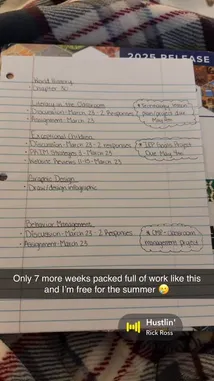 2025 RELEASE
World History
- Chapter 30
Literacy in the Classroom
- Discussion - March 23 - 2 Responses
- Assignment - March 23
* Technology
plan/project due
May 9th
Exceptional Children
- Discussion - March 23 - 2 responses
- Strategies - March 23
- Website Reviews 11-15 - March 23
* IEP Goals Project
Due May 9th
Graphic Design
- Draw/design infographic
Behavior Management
- Discussion - March 23 - 2 Responses
- Assignment - March 23
* CMP - Classroom
management project
Only 7 more weeks packed full of work like this
and I'm free for the summer 😢
Hustlin'
Rick Ross